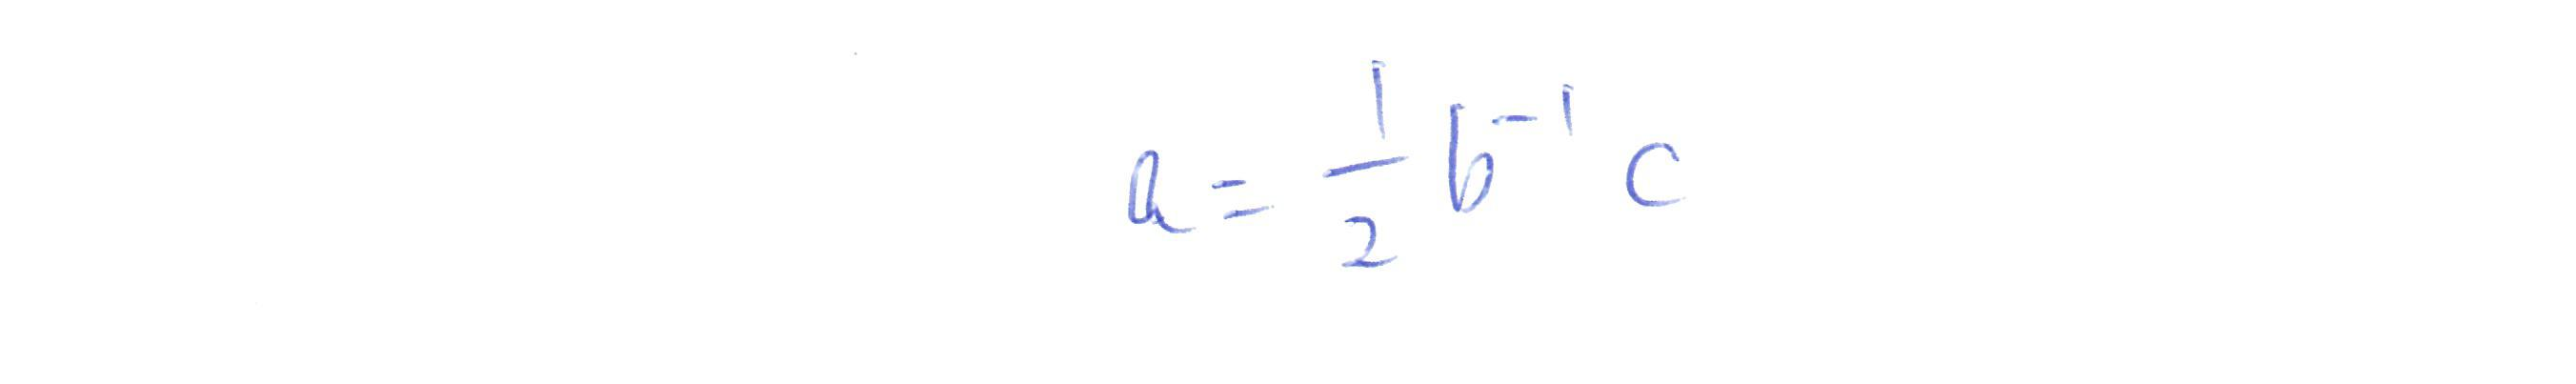 a = \frac{1}{2} b^{-1} c